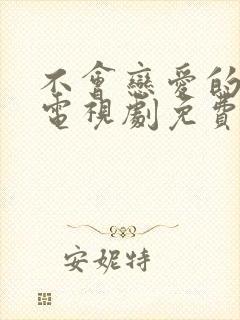 不會戀愛的
電視劇免費
安妮特